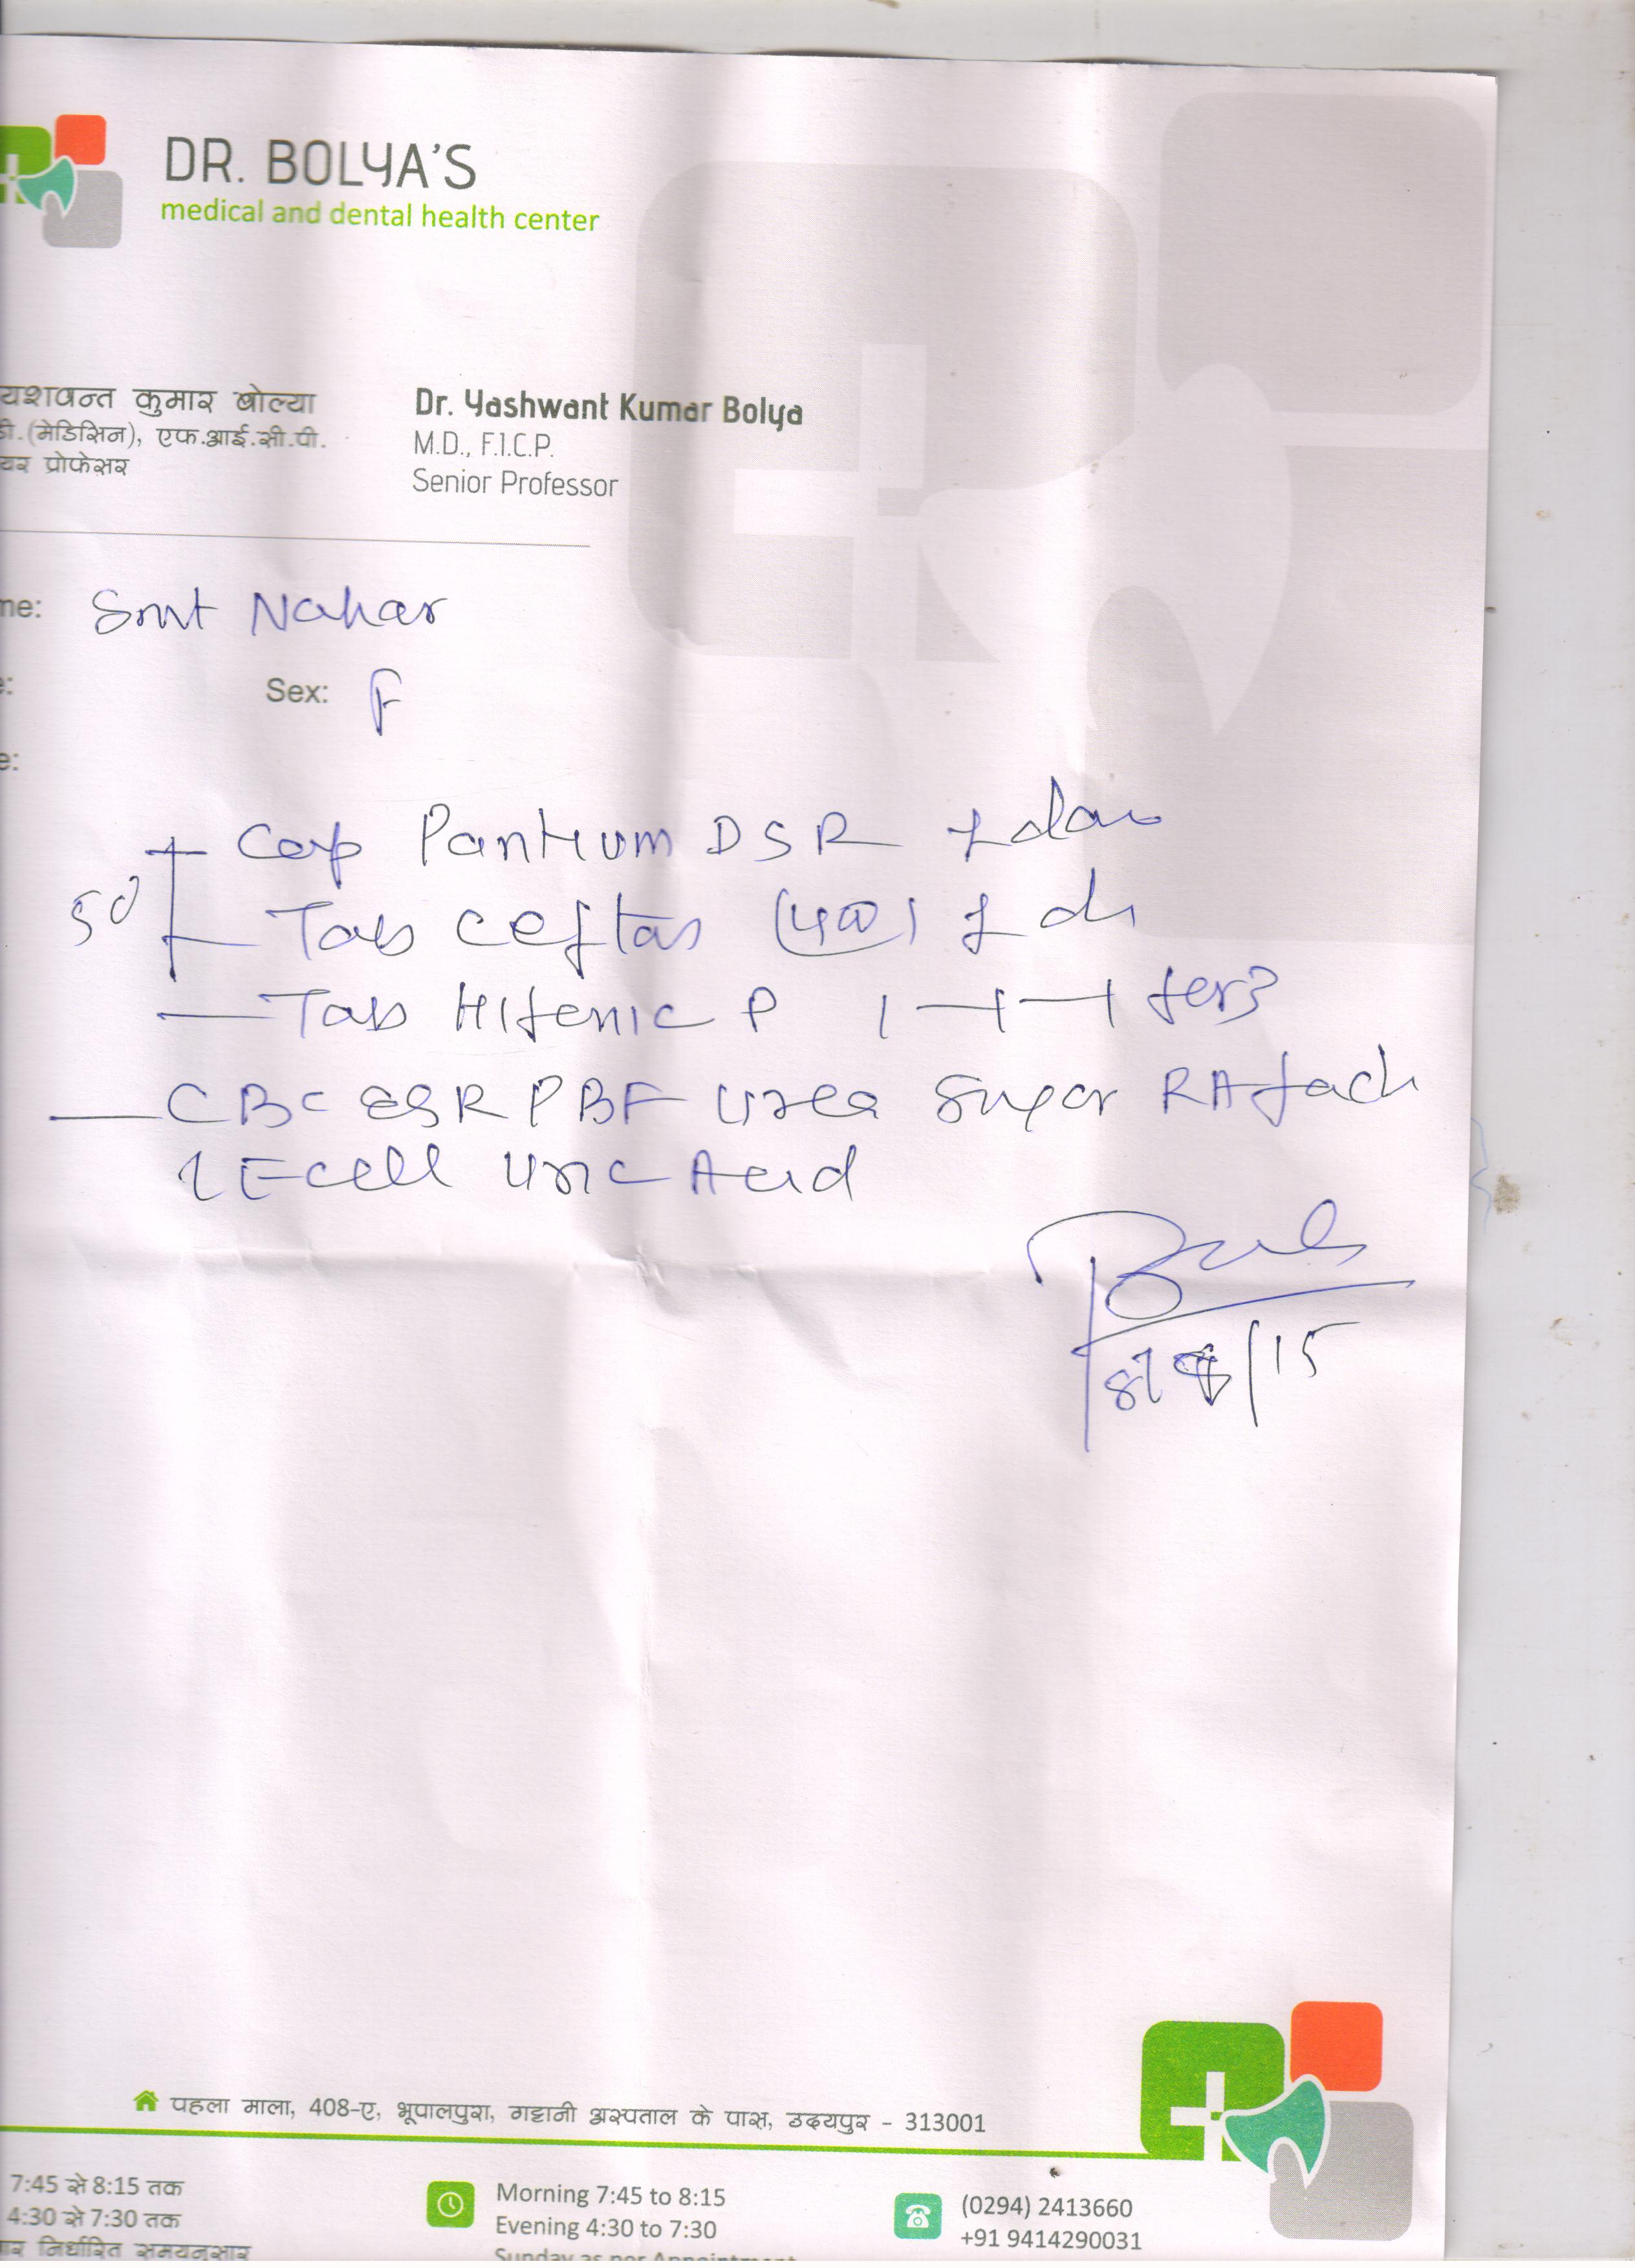 DR. BOLYA'S
medical and dental health center
यशवन्त कुमार बोल्या
डी.(मेडिसिन), एफ.आई.सी.पी.
यर प्रोफेसर
Dr. Yashwant Kumar Bolya
M.D., F.I.C.P.
Senior Professor
me: Smt Nahar
e: Sex: F
e:
5d
Cap Pantium DSR 1 dai
Tab Ceftas (400) 1 d
Tab Hifenic P 1-1-1 for 3
CBC ESR PBF Urea Sugar RA fact
LE cell Uric Acid
/15
पहला माला, 408-ए, भूपालपुरा, गट्टानी अस्पताल के पास, उदयपुर - 313001
7:45 से 8:15 तक
4:30 से 7:30 तक
ार निर्धारित समयनुसार
Morning 7:45 to 8:15
Evening 4:30 to 7:30
Sunday as per Appointment
(0294) 2413660
+91 9414290031